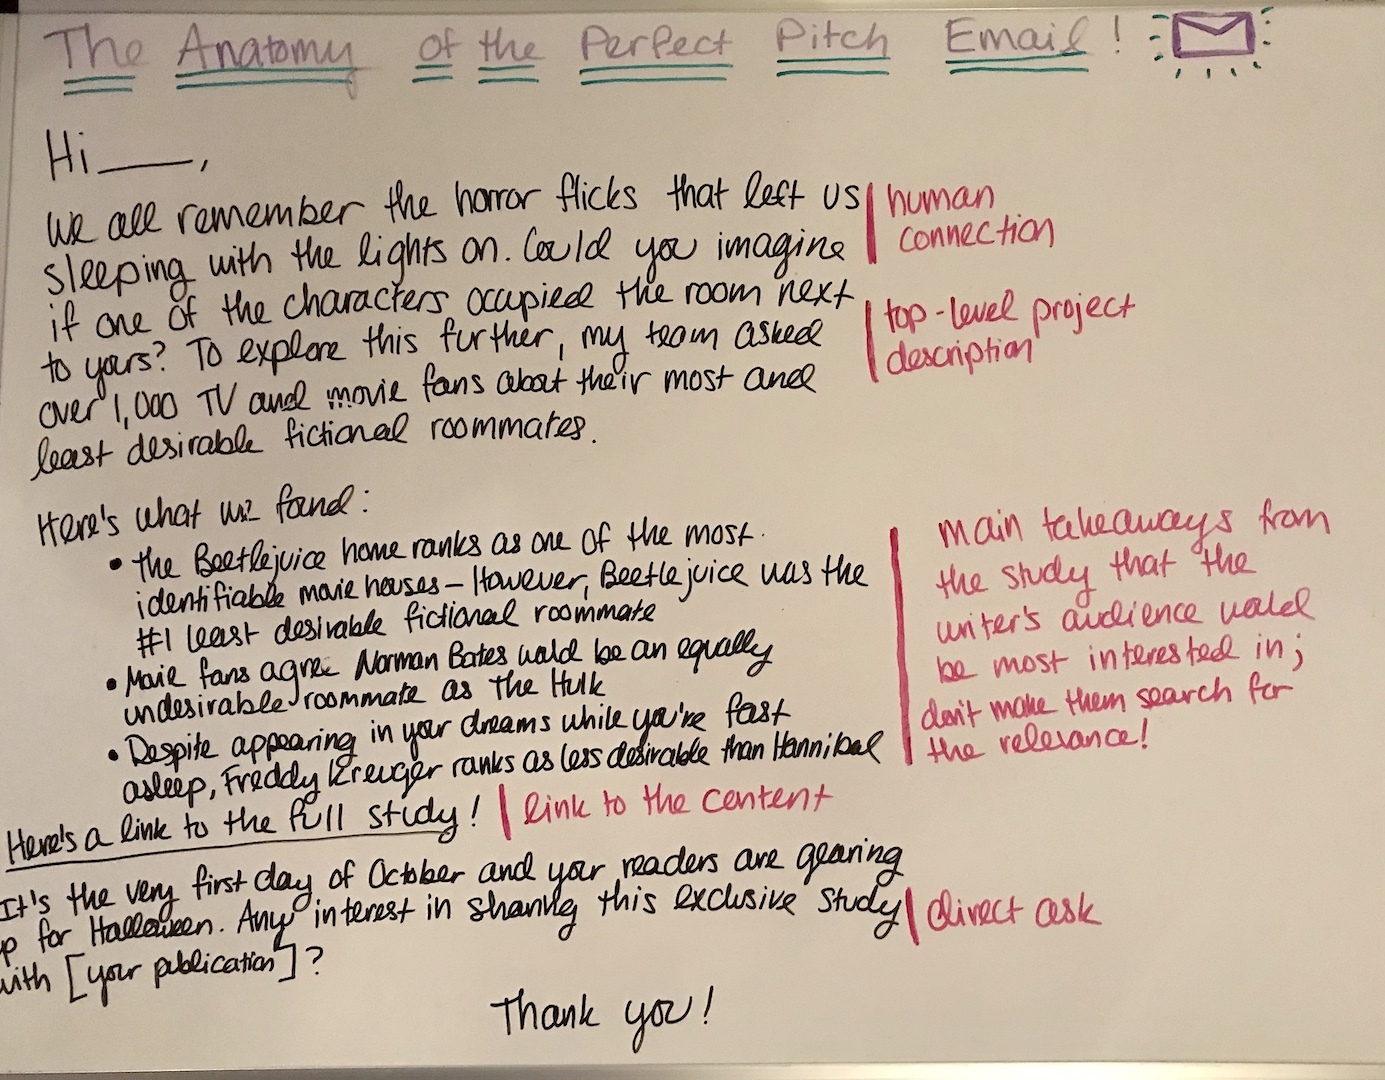 The Anatomy of the Perfect Pitch Email!
Hi ____,
We all remember the horror flicks that left us
sleeping with the lights on. Could you imagine
if one of the characters occupied the room next
to yours? To explore this further, my team asked
over 1,000 TV and movie fans about their most and
least desirable fictional roommates.
human
connection
top-level project
description
Here's what we found:
• the Beetlejuice home ranks as one of the most
identifiable movie houses – However, Beetlejuice was the
#1 least desirable fictional roommate
• Movie fans agree Norman Bates would be an equally
undesirable roommate as The Hulk
• Despite appearing in your dreams while you're fast
asleep, Freddy Kreuger ranks as less desirable than Hannibal
main takeaways from
the study that the
writer's audience would
be most interested in;
don't make them search for
the relevance!
Here's a link to the full study!
link to the content
It's the very first day of October and your readers are gearing
p for Halloween. Any interest in sharing this exclusive study
with [your publication]?
direct ask
Thank you!